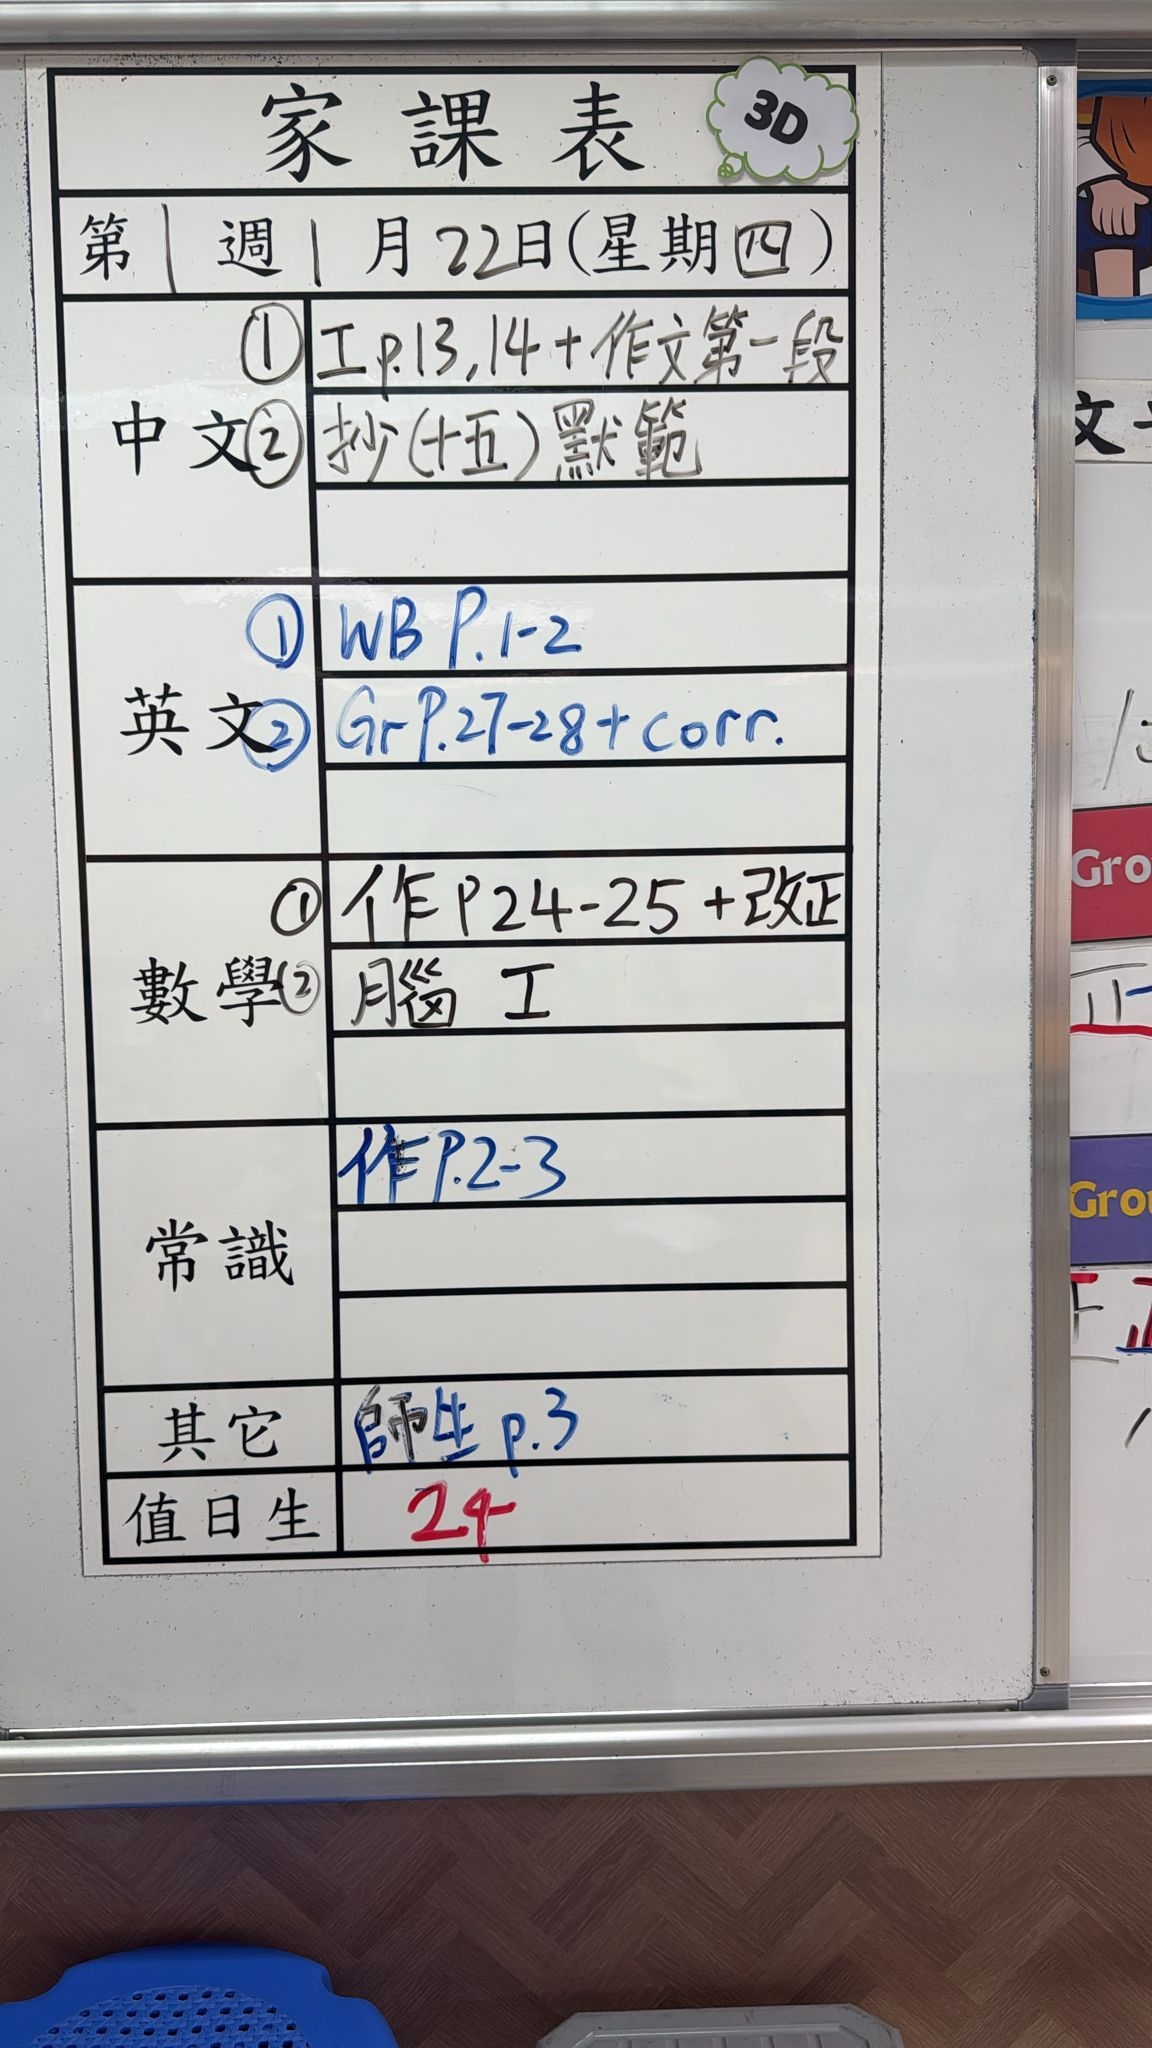 家課表 3D
第1週1月22日(星期四)
中文
① 工p.13,14+作文第一段
② 抄(十五)默範
英文
① WB P.1-2
② Gr P.27-28+corr.
數學
① 作P24-25+改正
② 腦 工
常識
作P.2-3
其它 師生 p.3
值日生 24
文
Gro
Grou